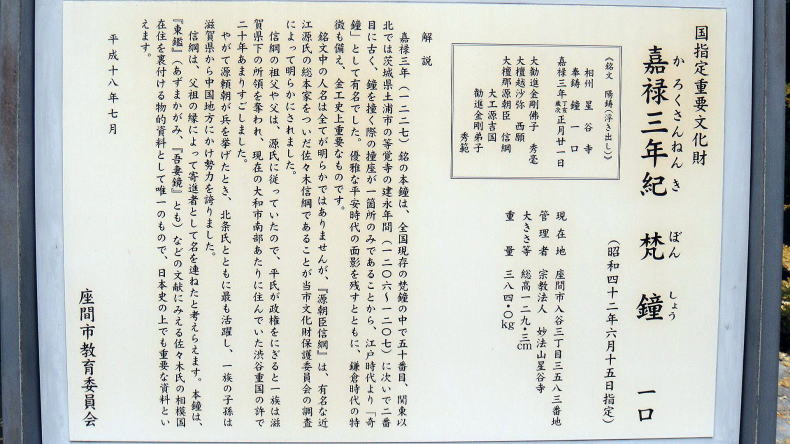 国指定重要文化財
嘉禄三年紀 梵鐘 一口
かろくさんねんき ぼんしょう
（昭和四十二年六月十五日指定）
《銘文 陽鋳（浮き出し）》
相州 星谷寺
奉鋳 鐘 口
嘉禄三年丁亥歳次正月廿一日
大勧進金剛佛子 秀毫
大檀越沙弥 西願
大檀那源朝臣 信綱
大工源吉国
勧進金剛弟子
秀範
現在地 座間市入谷三丁目三五八三番地
管理者 宗教法人 妙法山星谷寺
大きさ等 総高一二九・三cm
重量 三八四・〇kg
解説
嘉禄三年（一二二七）銘の本鐘は、全国現存の梵鐘の中で五十番目、関東以
北では茨城県土浦市の等覚寺の建永年間（一二〇六～一二〇七）に次いで二番
目に古く、鐘を撞く際の撞座が一箇所のみであることから、江戸時代より「奇
鐘」として有名でした。優雅な平安時代の面影を残すとともに、鎌倉時代の特
徴も備え、金工史上重要なものです。
銘文中の人名は全てが明らかではありませんが、『源朝臣信綱』は、有名な近
江源氏の総本家をついだ佐々木信綱であることが当市文化財保護委員会の調査
によって明らかにされました。
信綱の祖父や父は、源氏に従っていたので、平氏が政権をにぎると一族は滋
賀県下の所領を奪われ、現在の大和市南部あたりに住んでいた渋谷重国の許で
二十年あまりすごしました。
やがて源頼朝が兵を挙げたとき、北条氏とともに最も活躍し、一族の子孫は
滋賀県から中国地方にかけ勢力を誇りました。
信綱は、父祖の縁によって寄進者として名を連ねたと考えらえます。本鐘は、
『東鑑』（あずまかがみ、『吾妻鏡』とも）などの文献にみえる佐々木氏の相模国
在住を裏付ける物的資料として唯一のもので、日本史の上でも重要な資料とい
えます。
平成十八年七月
座間市教育委員会